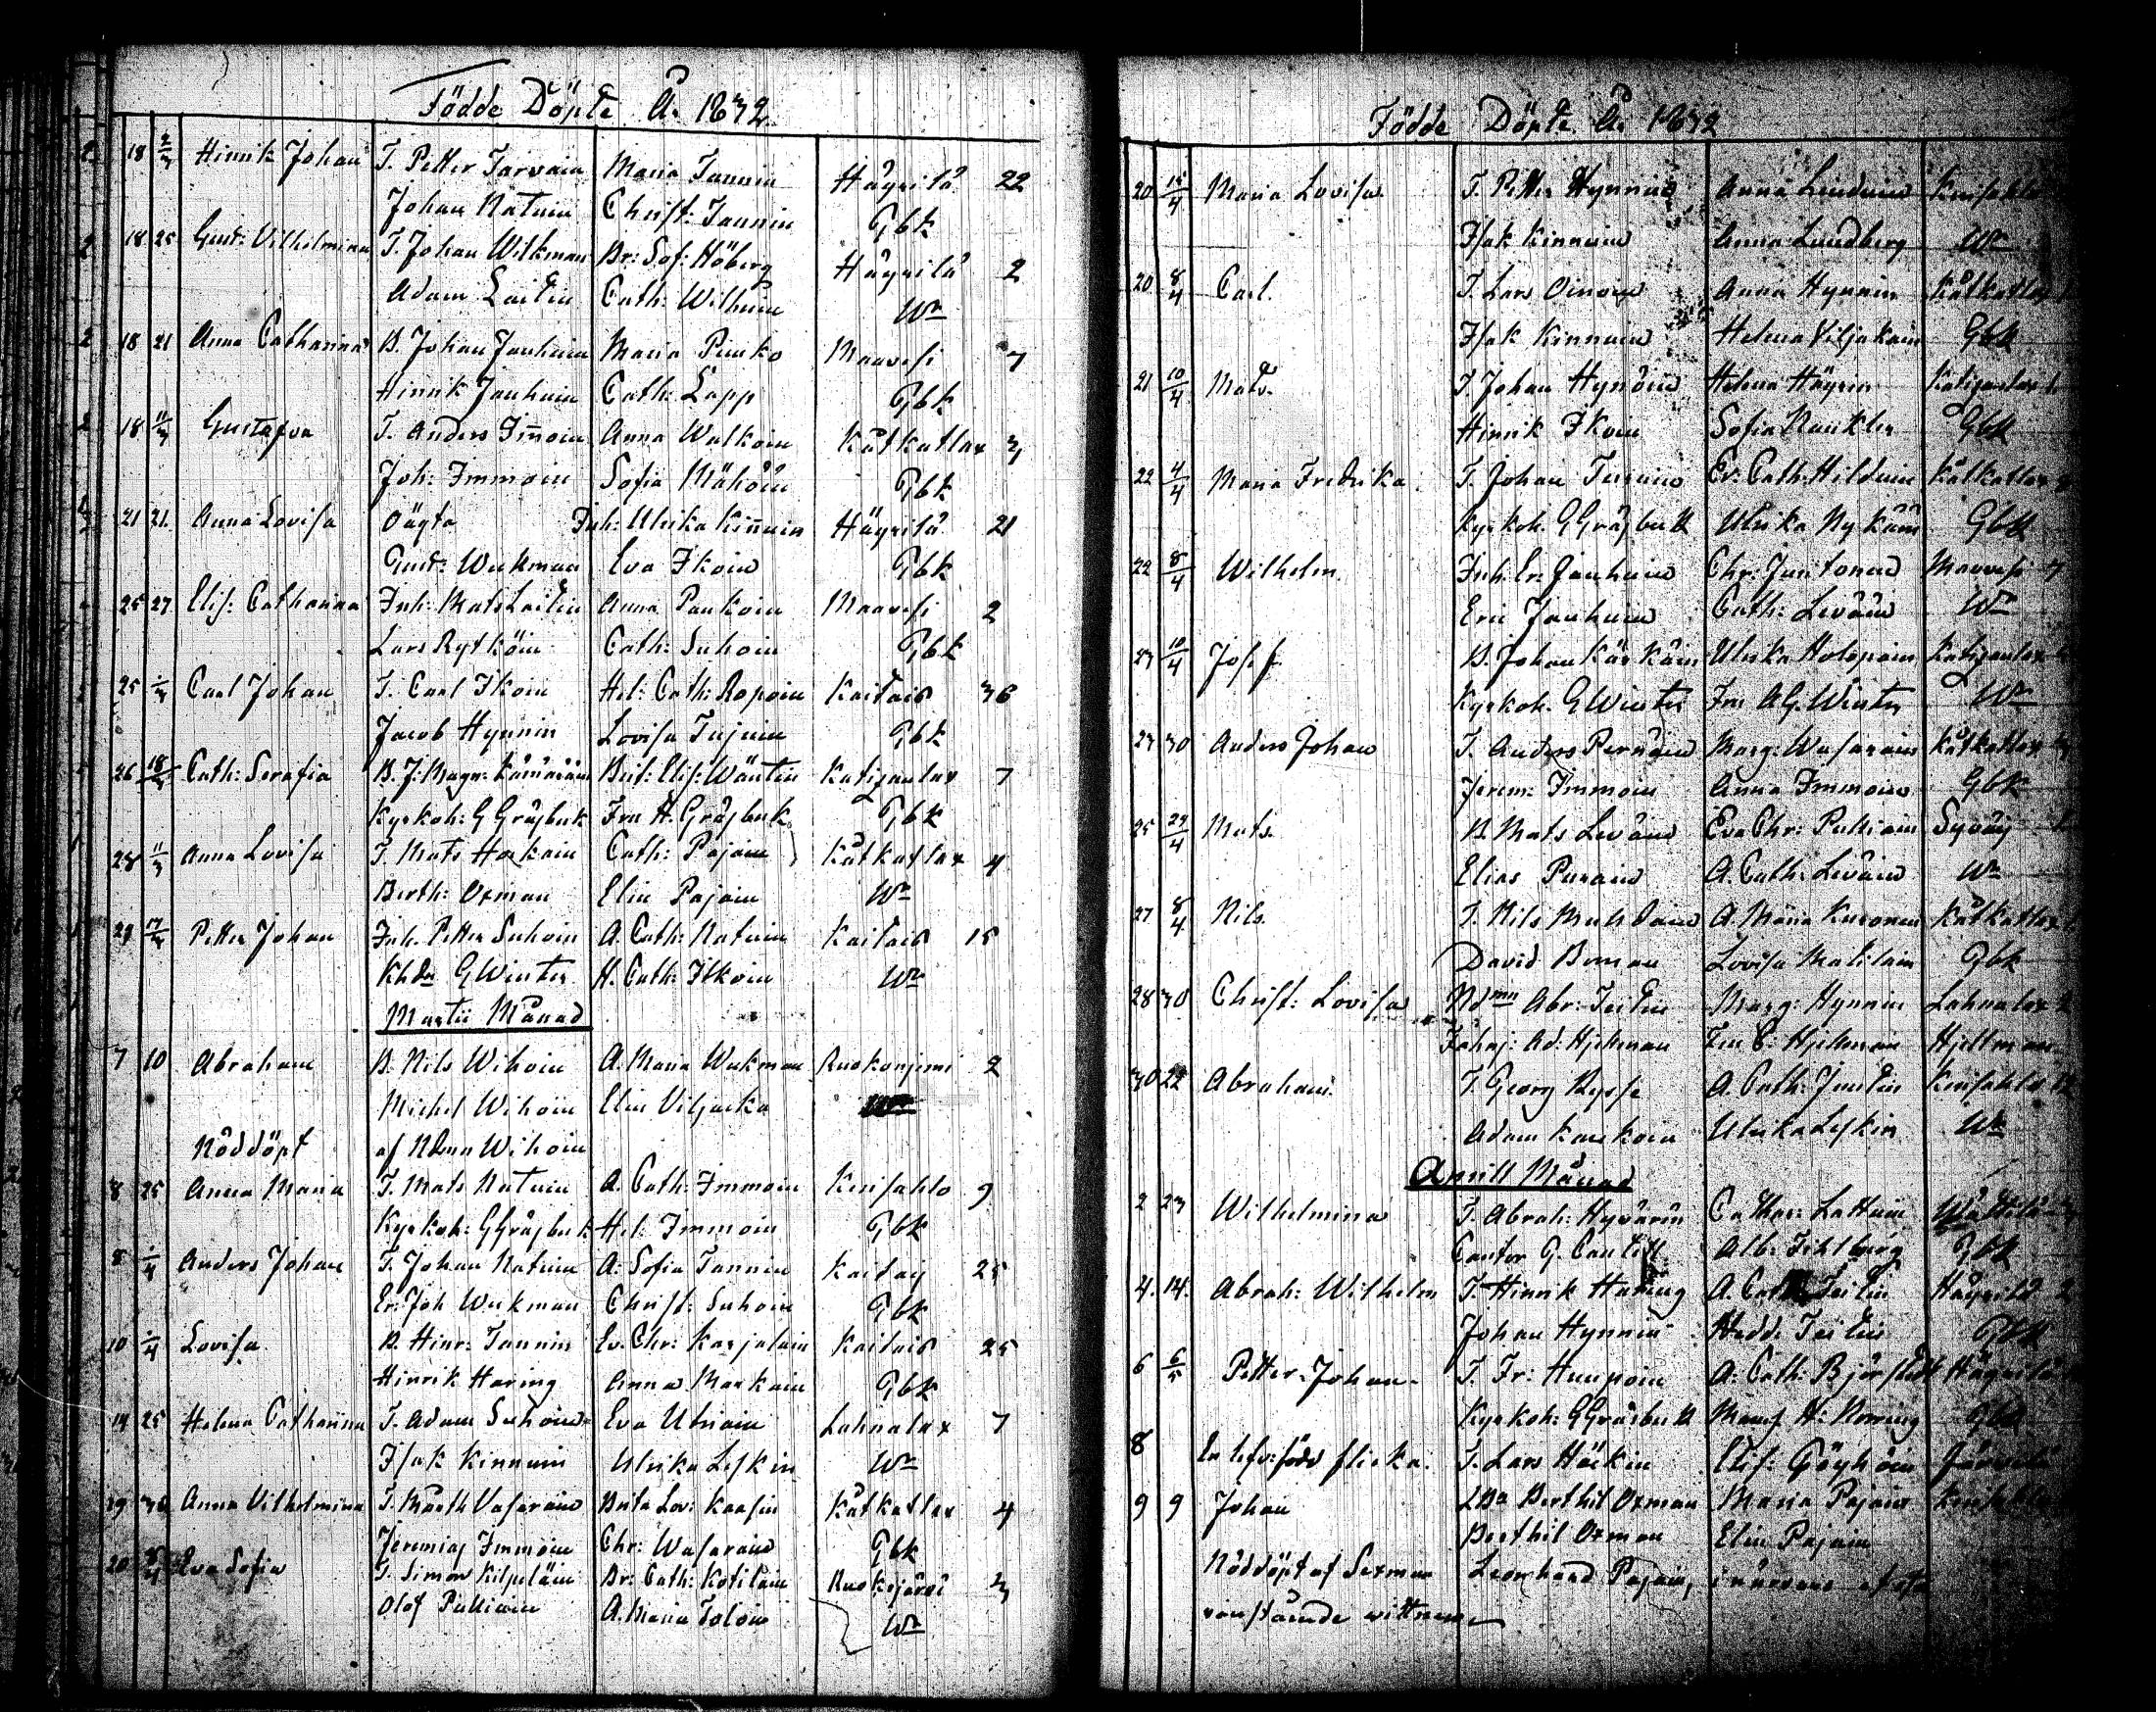 Födde Döpte År 1832
18 2/3 Hinrik Johan T. Petter Tarvain Maria Tannin Häyrilä 22
Johan Natuin Christ: Tannin Gbk
18 25 Gust: Vilhelmina T. Johan Wilkman Br: Sof: Höberg Häyrilä 2
Adam Laitin Cath: Wilhuin Wr
18 21 Anna Catharina B. Johan Jauhiain Maria Puuko Maavesi 7
Hinrik Jauhiain Cath: Lapp Gbk
18 11/3 Gustafva T. Anders Immoin Anna Walkoin Kåtkatlax 3
Joh: Immoin Sofia Mähöin Gbk
21 21. Anna Lovisa Oägta Inh: Ulrika Kinnuin Häyrilä 21
Gust: Weckman Eva Ikoin Gbk
25 27 Elis: Catharina Inh: Mats Laitin Anna Paukoin Maavesi 2
Lars Rytköin Cath: Suhoin Gbk
25 1/3 Carl Johan T. Carl Ikoin Hel: Cath: Ropoin Kaitais 36
Jacob Hynnin Lovisa Tujuin Gbk
26 18/3 Cath: Serafia B. J: Magn: Kämäräin Brit: Elis: Wäntin Katizanlax 7
Kyrkoh: G Gråsbeck Fru H. Gråsbeck Gbk
28 11/3 Anna Lovisa T. Mats Hackain Cath: Pajain Kåtkatlax 4
Berth: Oxman Elin Pajain Wr
29 17/3 Petter Johan Inh. Petter Suhoin A. Cath: Natuin Kaitais 15
Khdn G Winter H. Cath: Itkoin Wr
Martii Månad
7 10 Abraham B. Nils Wihoin A. Maria Weckman Ruokonjemi 2
Michel Wihoin Elin Viljacka
Nöddöpt af Ndmn Wihoin
8 25 Anna Maria T. Mats Natuin A. Cath: Immoin Kerisahlo 9
Kyrkoh: G Gråsbeck Hel: Immoin Gbk
8 1/4 Anders Johan T. Johan Natuin A: Sofia Tannin Kaitay 25
Er: Joh Weckman Christ: Suhoin Gbk
10 1/4 Lovisa B. Hinr: Tannin Ev. Chr: Karjalain Kaitais 25
Hinrik Haring Anna Markain Gbk
14 25 Helena Catharina T. Adam Suhoin Eva Utriain Lahnalax 7
Isak Kinnuin Ulrika Leskin Wr
19 30 Anna Vilhelmina T. Märth Vasarain Brita Lov: Kaasin Kåtkatlax 4
Jeremias Immoin Chr: Wasarain Gbk
20 Eva Sofia T. Simon Kilpeläin Br: Cath: Kotilain Ruokojärvi 3
Olof Pulliain A. Maria Toloin Wr
Födde Döpte År 1832
20 15/4 Maria Lovisa T. Petter Hynnin Anna Linduin
Isak Kinnuin Anna Lundberg Wr
20 8/4 Carl. T. Lars Oinoin Anna Hynnin Kåtkatlax
Isak Kinnuin Helena Viljakain Gbk
21 10/4 Mats. T. Johan Hynöin Helena Häyrin Katizanlax
Hinrik Ikoin Sofia Nauklin Gbk
22 4/4 Maria Fredrika. T. Johan Tiusain Er: Cath: Hilduin Kåtkatlax
Kyrkoh. G Gråsbeck Ulrika Nykäin Gbk
22 8/4 Wilhelm. Inh: Er: Jauhiain Chr: Juntonen Maavesi 7
Eric Jauhiain Cath: Leväin Wr
23 10/4 Josef B. Johan Kärkäin Ulrika Holopain Katizanlax
Kyrkoh. G Winter Fru A G. Winter Wr
23 30 Anders Johan T. Anders Pernäin Marg: Wasarain Kåtkatlax
Jerem: Immoin Anna Immoin Gbk
25 29/4 Mats. B. Mats Leväin Eva Chr: Pulliain Syväy
Elias Purain A. Cath: Leväin Wr
27 8/4 Nils. T. Nils Mustoin A. Maria Kuronen Kåtkatlax
David Boman Lovisa Matilain Gbk
28 30 Christ: Lovisa Ndmn Abr: Teitin Marg: Hynnin Lahnalax
Ad: Hjeltman Fru C: Hjeltman Hjeltman
30 22 Abraham. T. Georg Rysse A. Cath: Juutin
Adam Kaukoin Ulrika Leskin Wr
Aprill Månad
2 23 Wilhelmina T. Abrah: Hyvärin Cathar: Lattuin
Cantor G. Cantell Alb: Fihlberg Gbk
4. 14. Abrah: Wilhelm T. Hinrik Haring A. Cath Teitin Häyrilä 2
Johan Hynnin Hedd. Teitin Gbk
6 6/5 Petter Johan T. Fr: Huupoin A: Cath: Björstedt Häyrilä
Kyrkoh: G Gråsbeck Mamsf H: Noring Gbk
8 flicka. T. Lars Häckin Elis: Göyhöin
9 9 Johan Berthil Oxman Maria Pajain
Berthil Oxman Elin Pajain
Nöddöpt af Sexman Leonhard Pajain, i närvaro af
vanstående wittnen